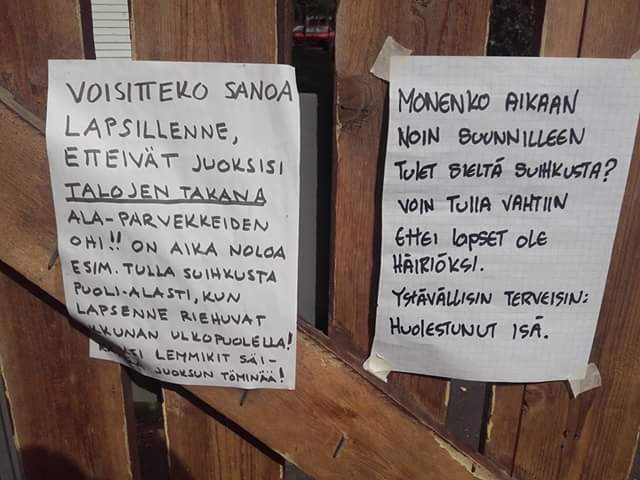 VOISITTEKO SANOA
LAPSILLENNE,
ETTEIVÄT JUOKSISI
TALOJEN TAKANA
ALA-PARVEKKEIDEN
OHI!! ON AIKA NOLOA
ESIM. TULLA SUIHKUSTA
PUOLI-ALASTI, KUN
LAPSENNE RIEHUVAT
ULKOPUOLELLA!
LEMMIKIT SÄI-
JUOKSUN TÖMINÄÄ!
MONENKO AIKAAN
NOIN SUUNNILLEEN
TULET SIELTÄ SUIHKUSTA?
VOIN TULLA VAHTIIN
ETTEI LAPSET OLE
HÄIRIÖKSI.
YSTÄVÄLLISIN TERVEISIN:
HUOLESTUNUT ISÄ.